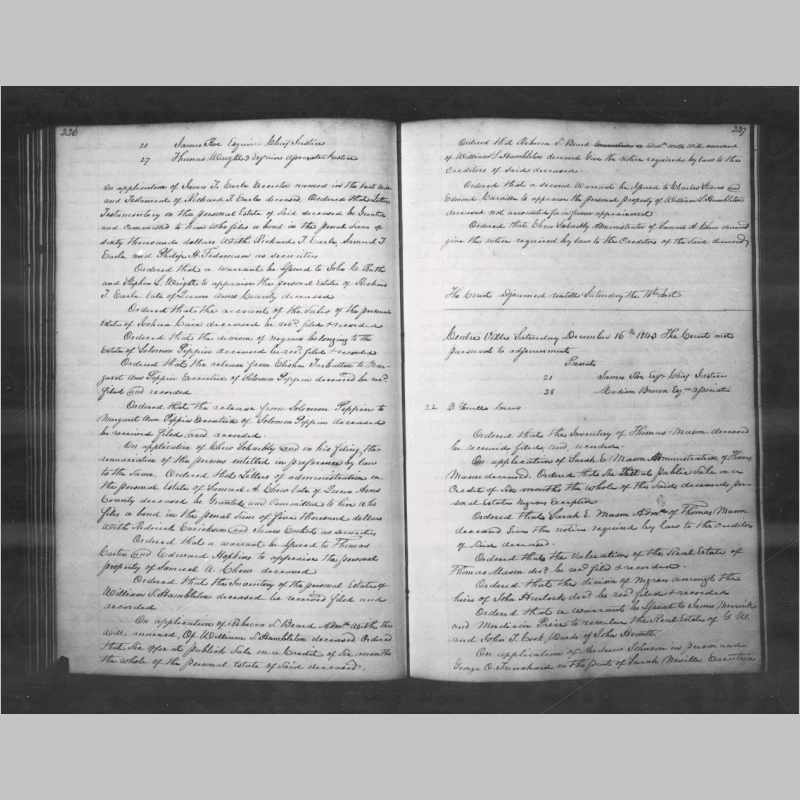 226
21 James Roe Esquire Chief Justice
27 Thomas Wright 3 Esquire Associate Justice
On application of James T. Earle Executor named in the last Will
and Testament of Richard T. Earle deceased, Ordered that Letters
Testamentary on the personal Estate of said deceased be Granted
and Committed to him who files a bond in the penal sum of
sixty thousand dollars with Richard T. Earle, Samuel T.
Earle and Philip H. Fedeman as securities
Ordered that a warrant be Issued to John C. Ruth
and Stephen L. Wright to appraise the personal Estate of Richard
T. Earle late of Queen Anns County deceased
Ordered that the account of the Sales of the personal
Estate of Joshua Cain deceased be recd. filed & recorded
Ordered that the division of negroes belonging to the
Estate of Solomon Peppin deceased be recd. filed & recorded
Ordered that the release from Elisha Tarbutton to Mar-
garet Ann Peppin Executrix of Solomon Peppin deceased be recd.
filed and recorded
Ordered that the release from Solomon Peppin to
Margaret Ann Peppin Executrix of Solomon Peppin deceased
be received filed and recorded.
On application of Chew Schnebly and on his filing, the
renunciation of the persons entitled in preference by law
to the same. Ordered that Letters of administration on
the personal Estate of Samuel A. Chew late of Queen Anns
County deceased be Granted and Committed to him who
files a bond in the penal sum of four thousand dollars
with as securities
Ordered that a warrant be Issued to Thomas
and Edward Hopkins to appraise the personal
property of Samuel A. Chew deceased
Ordered that the Inventory of the personal Estate of
William S. Hambleton deceased be received filed and
recorded
On application of Rebecca S. Beard Admx. with the
will annexed, Of William S. Hambleton deceased Ordered
that she offer at publick Sale on a Credit of six months
the whole of the personal Estate of said deceased.
227
Ordered that Rebecca S. Beard with will annexed
of William S. Hambleton deceased Give the notice required by law to the
Creditors of said deceased.
Ordered that a second warrant be Issued to Charles and
Edward to appraise the personal property of William S. Hambleton
deceased not heretofore appraised
Ordered that Chew Schnebly Administrator of Samuel A. Chew deceased
give the notice required by law to the Creditors of the said deceased
The Court Adjourned untill Saturday the 16th Inst
Centre Ville Saturday December 16th 1843 The Court met
pursuant to adjournment
Present
21 James Roe Esqr Chief Justice
28 Madison Brown Esqr Associate
22
Ordered that the Inventory of Thomas Mason deceased
be received filed and recorded.
On application of Sarah E. Mason Administratrix of Thomas
Mason deceased. Ordered that she Sell at public Sale on a
Credit of Six months the whole of the said deceaseds per-
sonal Estate Negroes Excepted
Ordered that Sarah E. Mason Admx. of Thomas Mason
deceased Give the notice required by law to the creditors
of said deceased.
Ordered that the Valuation of the Real Estate of
Thomas Mason decd. be recd. filed & recorded.
Ordered that the division of Negroes amongst the
heirs of John decd. be recd. filed & recorded
Ordered that a warrant be Issued to James Merrick
and Mordecai Price to revalue the Real Estate of
and John T. Cook, Wards of John
On application of Andrew Johnson in person and
George O. Trenchard on the part of Sarah Neville Executrix